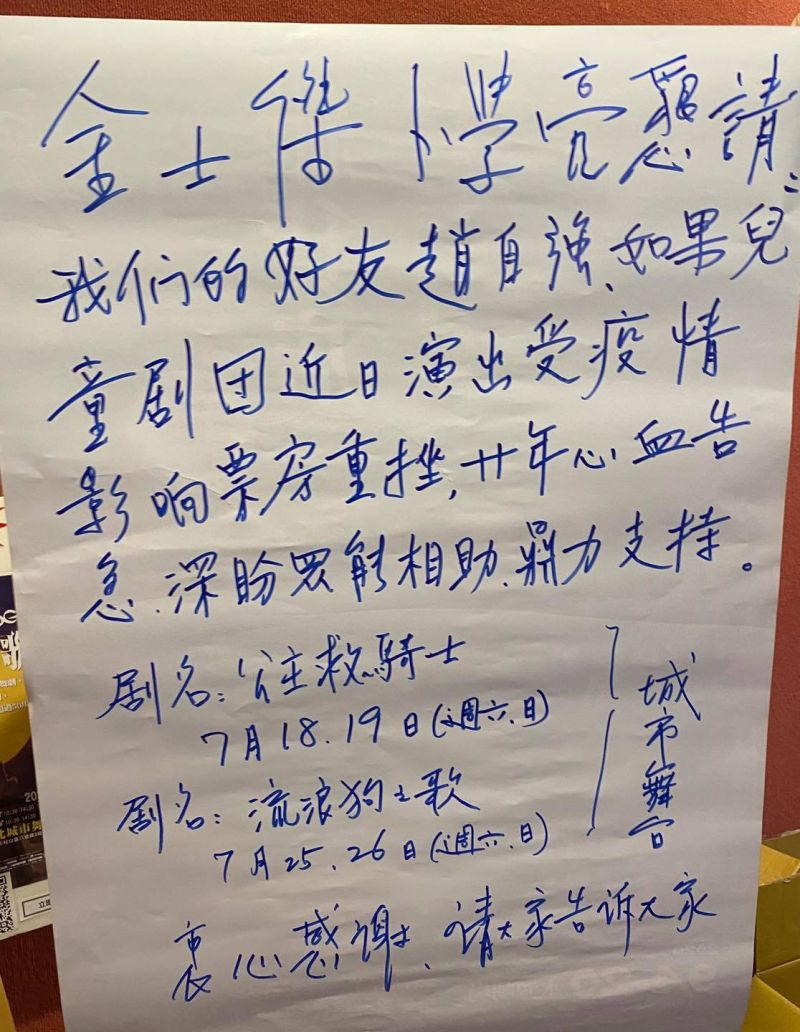 金士傑 卜學亮懇請:
我们的好友趙自強、如果兒
童剧团近日演出受疫情
影响票房重挫,廿年心血告
急、深盼眾能相助、鼎力支持。
剧名:公主救騎士
7月18.19日(週六.日)
剧名:流浪狗之歌
7月25.26日(週六.日)
城市舞台
衷心感谢、请大家告诉大家